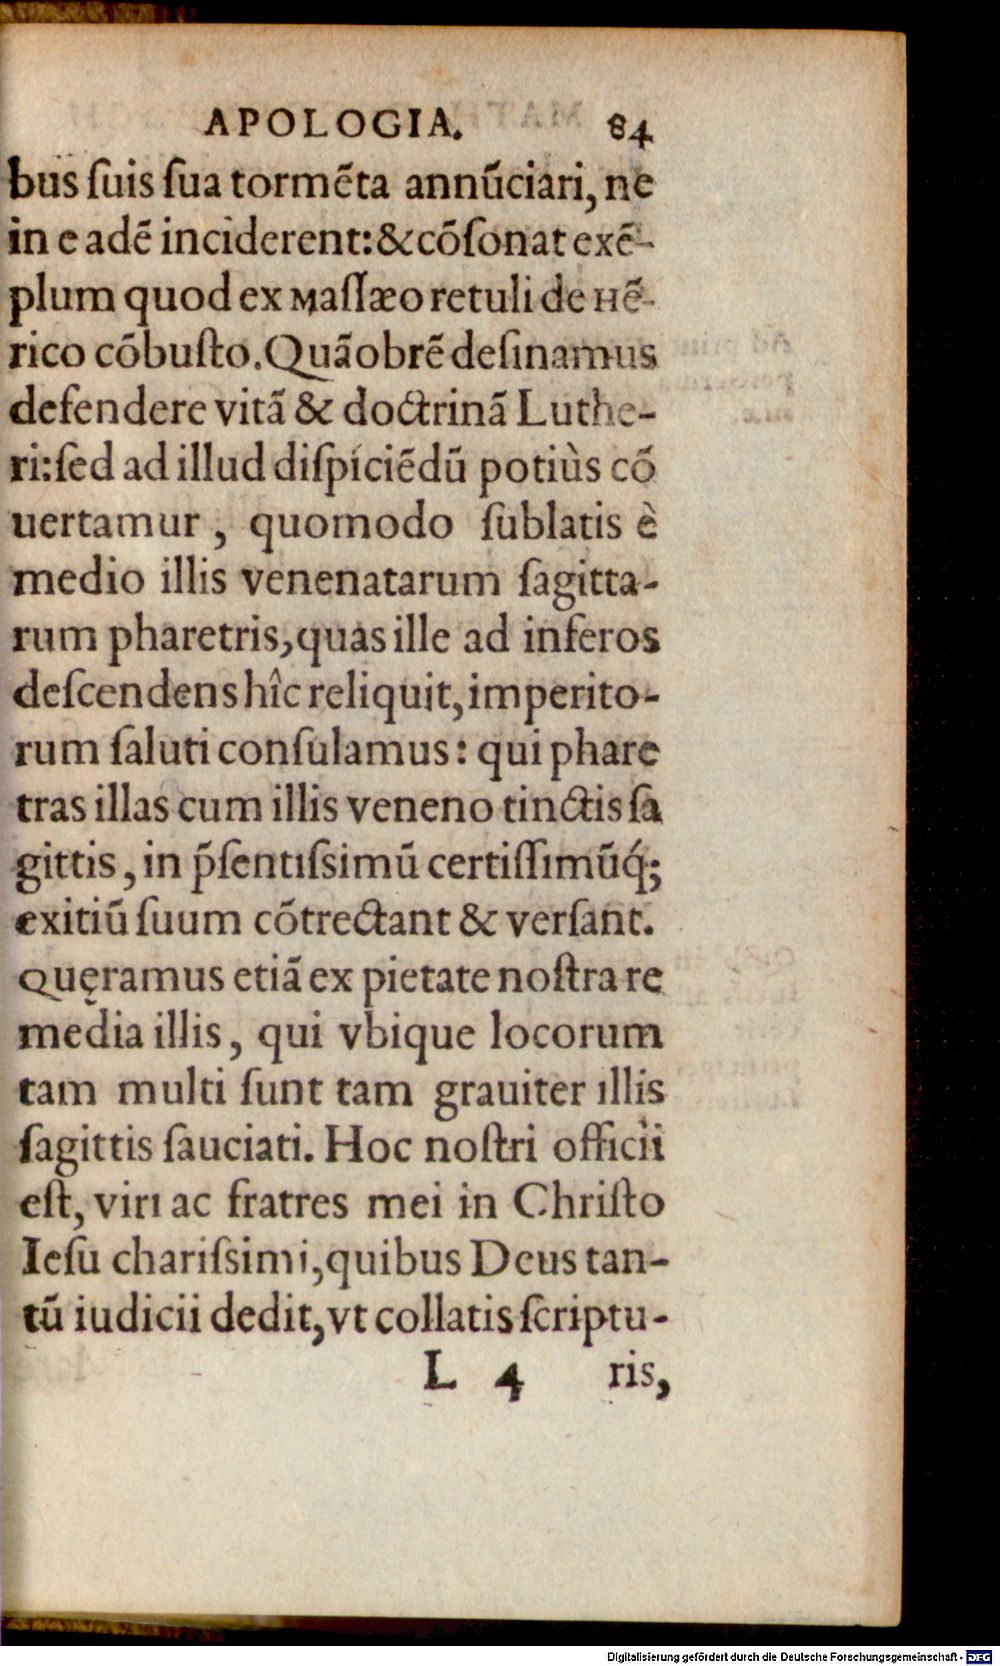 APOLOGIA. 84
bus ſuis ſua tormẽta annũciari, ne
in e adẽ inciderent: & cõſonat exẽ-
plum quod ex Maſſæo retuli de Hẽ-
rico cõbuſto. Quãobrẽ deſinamus
defendere vitã & doctrinã Luthe-
ri: ſed ad illud diſpiciẽdũ potiùs cõ
uertamur, quomodo ſublatis è
medio illis venenatarum ſagitta-
rum pharetris, quas ille ad inferos
deſcendens hîc reliquit, imperito-
rum ſaluti conſulamus: qui phare
tras illas cum illis veneno tinctis ſa
gittis, in p̃ſentiſsimũ certiſſimũq́;
exitiũ ſuum cõtrectant & verſant.
Quęramus etiã ex pietate noſtra re
media illis, qui vbique locorum
tam multi ſunt tam grauiter illis
ſagittis ſauciati. Hoc noſtri officii
eſt, viri ac fratres mei in Chriſto
Ieſu chariſsimi, quibus Deus tan-
tũ iudicii dedit, vt collatis ſcriptu-
L 4 ris,
Digitalisierung gefördert durch die Deutsche Forschungsgemeinschaft - DFG